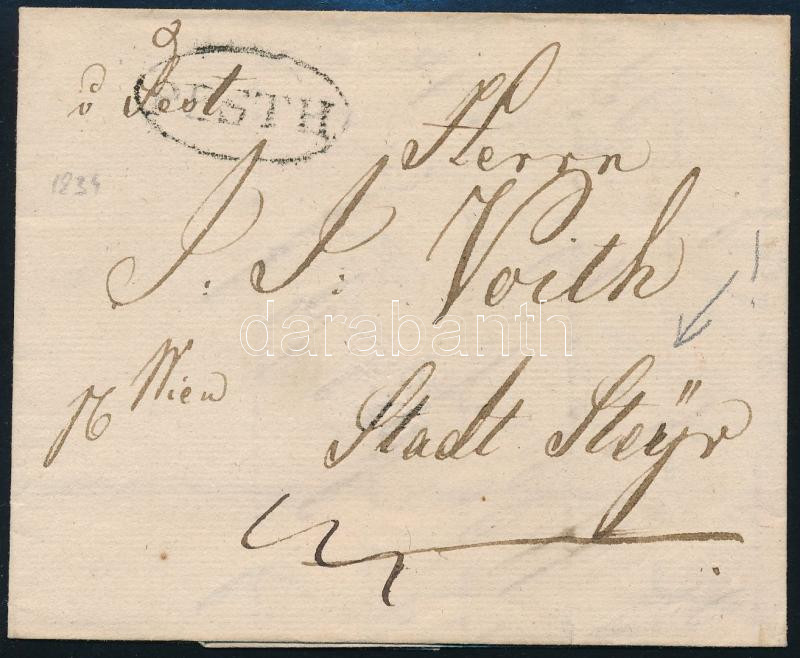 v Pest
PESTH
Herrn
1834
J. J. Voith
!
darabanth
p Wien
Stadt Steÿr